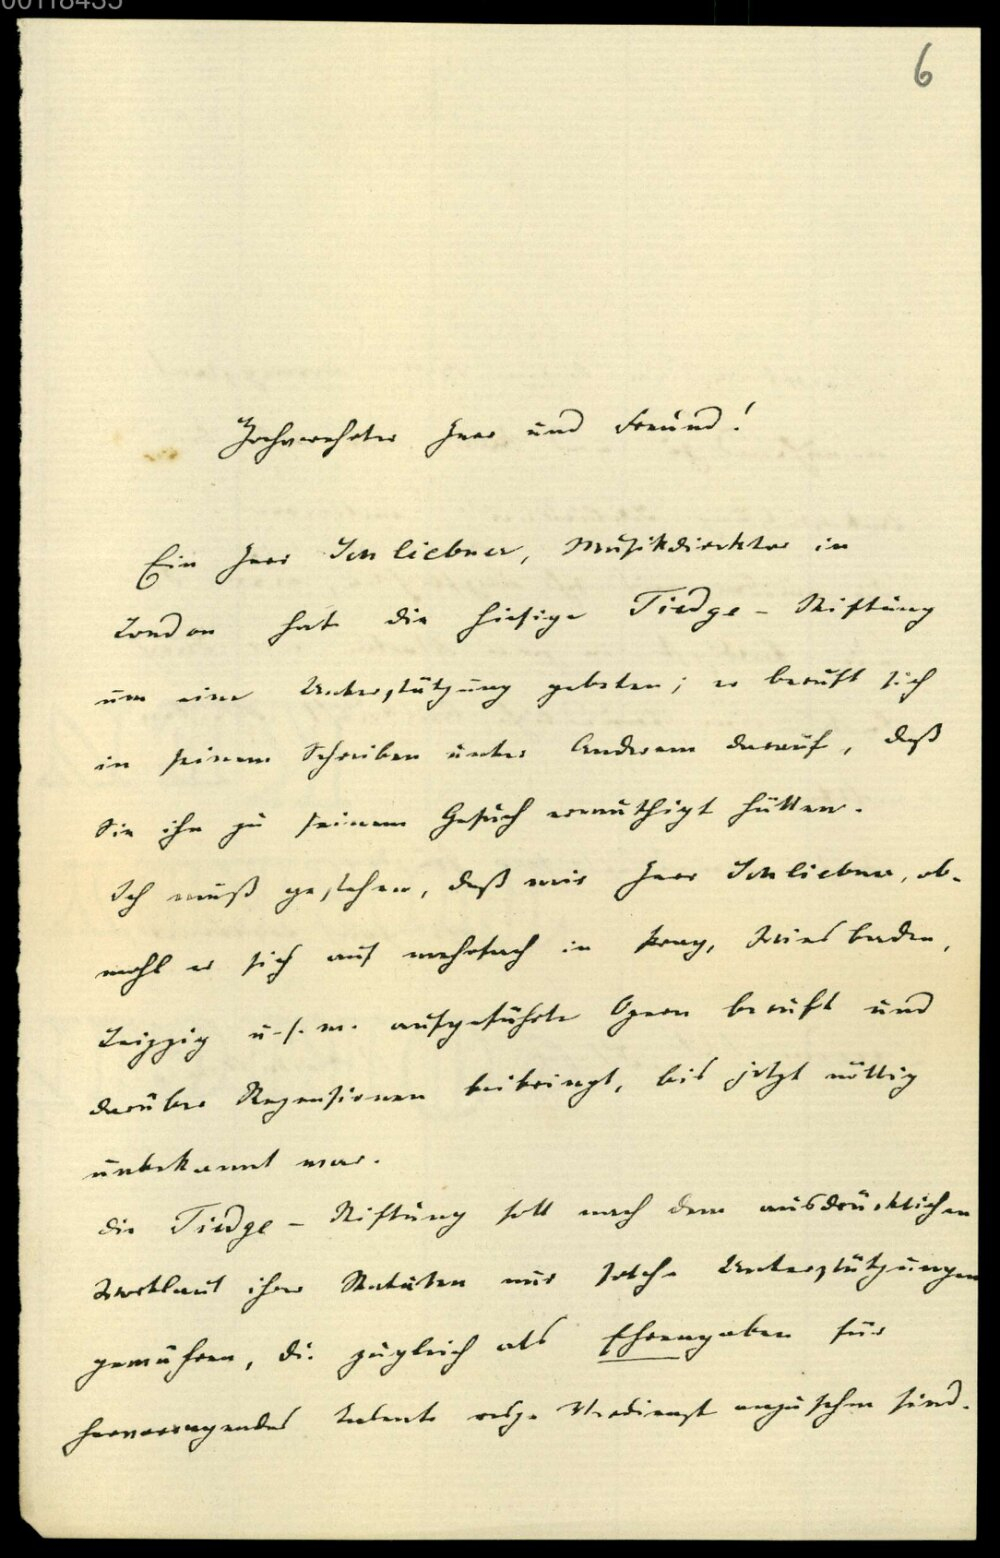 00118435
6
Hochverehrter Herr und Freund!
Ein Herr Schliebner, Musikdirektor in
London hat die hiesige Tiedge-Stiftung
um eine Unterstützung gebeten; er beruft sich
in seinem Schreiben unter Anderem darauf, daß
Sie ihn zu seinem Gesuch ermuthigt hätten.
Ich muß gestehen, daß mir Herr Schliebner, ob-
wohl er sich auf mehrfach in Prag, Wiesbaden,
Leipzig u.s.w. aufgeführte Opern beruft und
darüber Rezensionen beibringt, bis jetzt völlig
unbekannt war.
die Tiedge-Stiftung soll nach dem ausdrücklichen
Wortlaut ihrer Statuten nur solche Unterstützungen
gewähren, die zugleich als Ehrengaben für
hervorragendes Talent resp. Verdienst anzusehen sind.